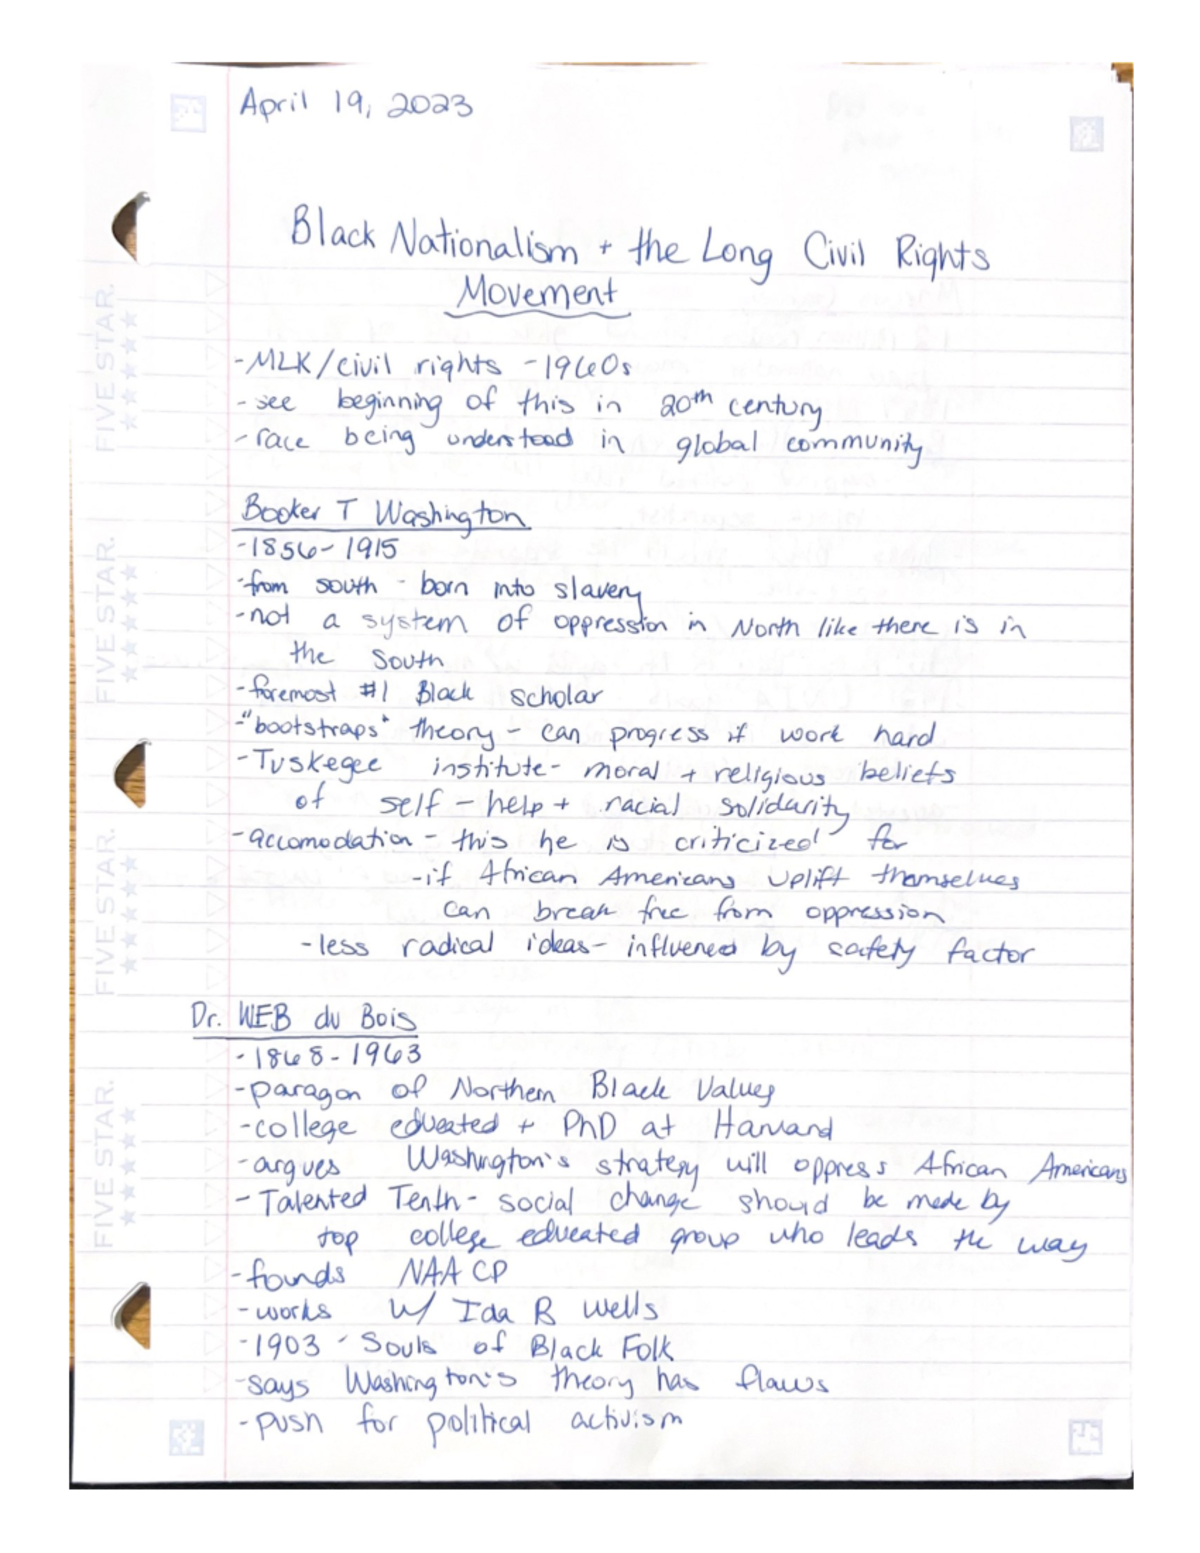 April 19, 2023
Black Nationalism + the Long Civil Rights
Movement
-MLK/civil rights - 1960s
- see beginning of this in 20th century
- race being understood in global community
Booker T Washington
-1856-1915
-from south - born into slavery
-not a system of oppression in North like there is in
the South
-foremost #1 Black scholar
-"bootstraps" theory - can progress if work hard
-Tuskegee institute- moral + religious beliefs
of self-help + racial solidarity
-accomodation - this he is criticized for
-if African Americans uplift themselves
can break free from oppression
-less radical ideas- influenced by safety factor
Dr. WEB du Bois
-1868-1963
-paragon of Northern Black Values
-college educated + PhD at Harvard
-argues Washington's strategy will oppress African Americans
- Talented Tenth- social change should be made by
top college educated group who leads the way
-founds NAACP
-works w/ Ida B Wells
-1903 - Souls of Black Folk
-says Washington's theory has flaws
-push for political activism
FIVE STAR.
FIVE STAR.
FIVE STAR.
FIVE STAR.